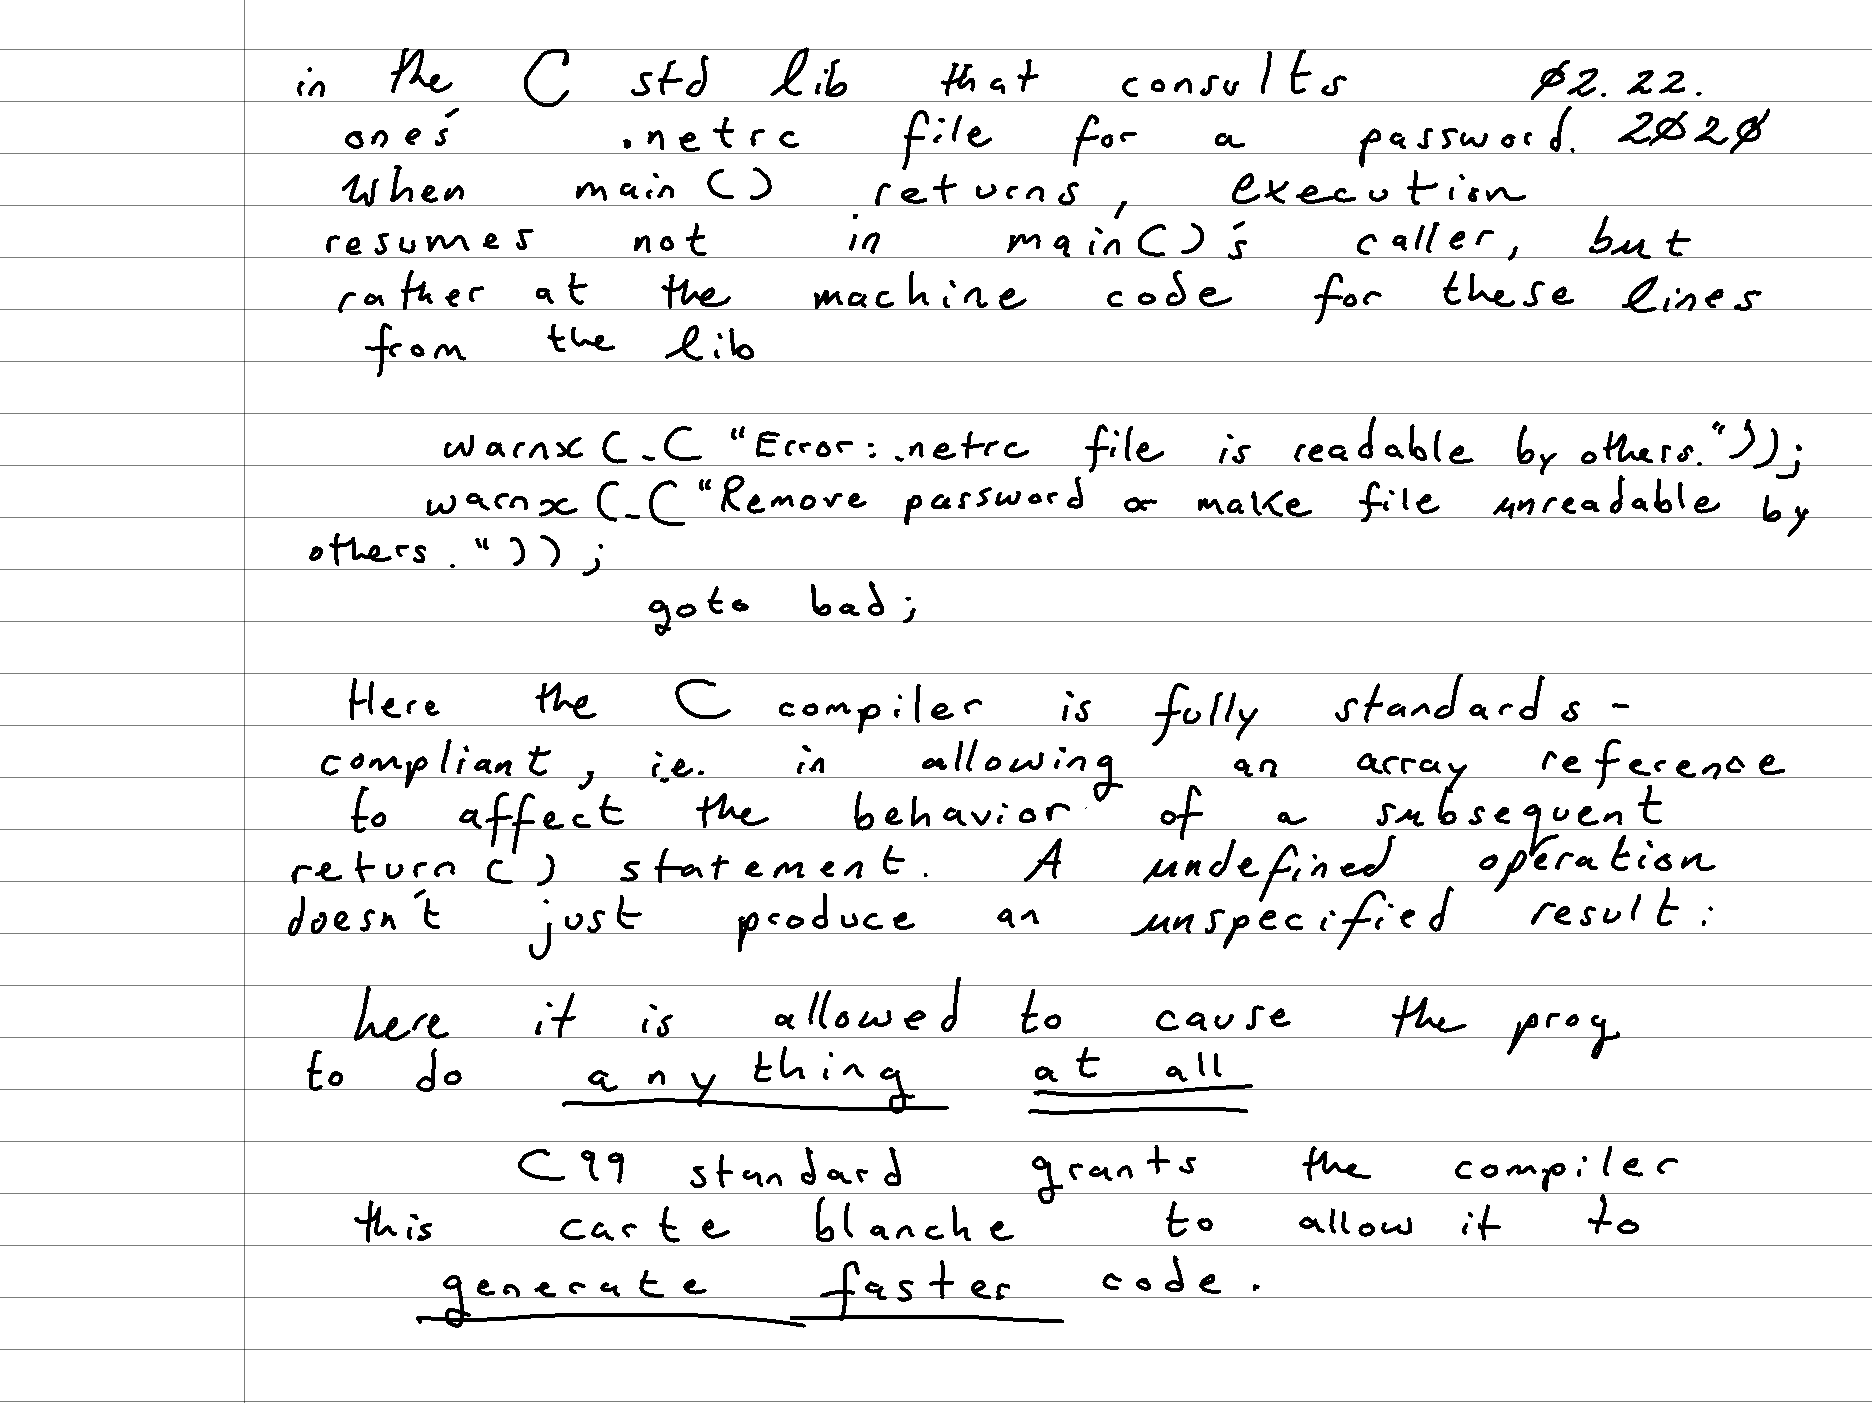 in the C std lib that consults 02.22.
one's .netrc file for a password. 2020
When main() returns, execution
resumes not in main()'s caller, but
rather at the machine code for these lines
from the lib
warnx(_("Error: .netrc file is readable by others."));
warnx(_("Remove password or make file unreadable by
others."));
goto bad;
Here the C compiler is fully standards-
compliant, i.e. in allowing an array reference
to affect the behavior of a subsequent
return() statement. A undefined operation
doesn't just produce an unspecified result:
here it is allowed to cause the prog
to do anything at all
C99 standard grants the compiler
this carte blanche to allow it to
generate faster code.